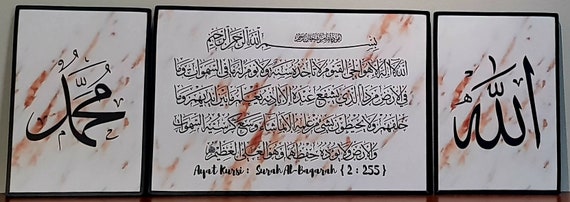 الله
بسم الله الرحمن الرحيم
الله لا إله إلا هو الحي القيوم لا تأخذه سنة ولا نوم له ما في السموات وما
في الأرض من ذا الذي يشفع عنده إلا بإذنه يعلم ما بين أيديهم وما
خلفهم ولا يحيطون بشيء من علمه إلا بما شاء وسع كرسيه السموات
والأرض ولا يئوده حفظهما وهو العلي العظيم
Ayat Kursi : Surah Al-Baqarah { 2 : 255 }
محمد